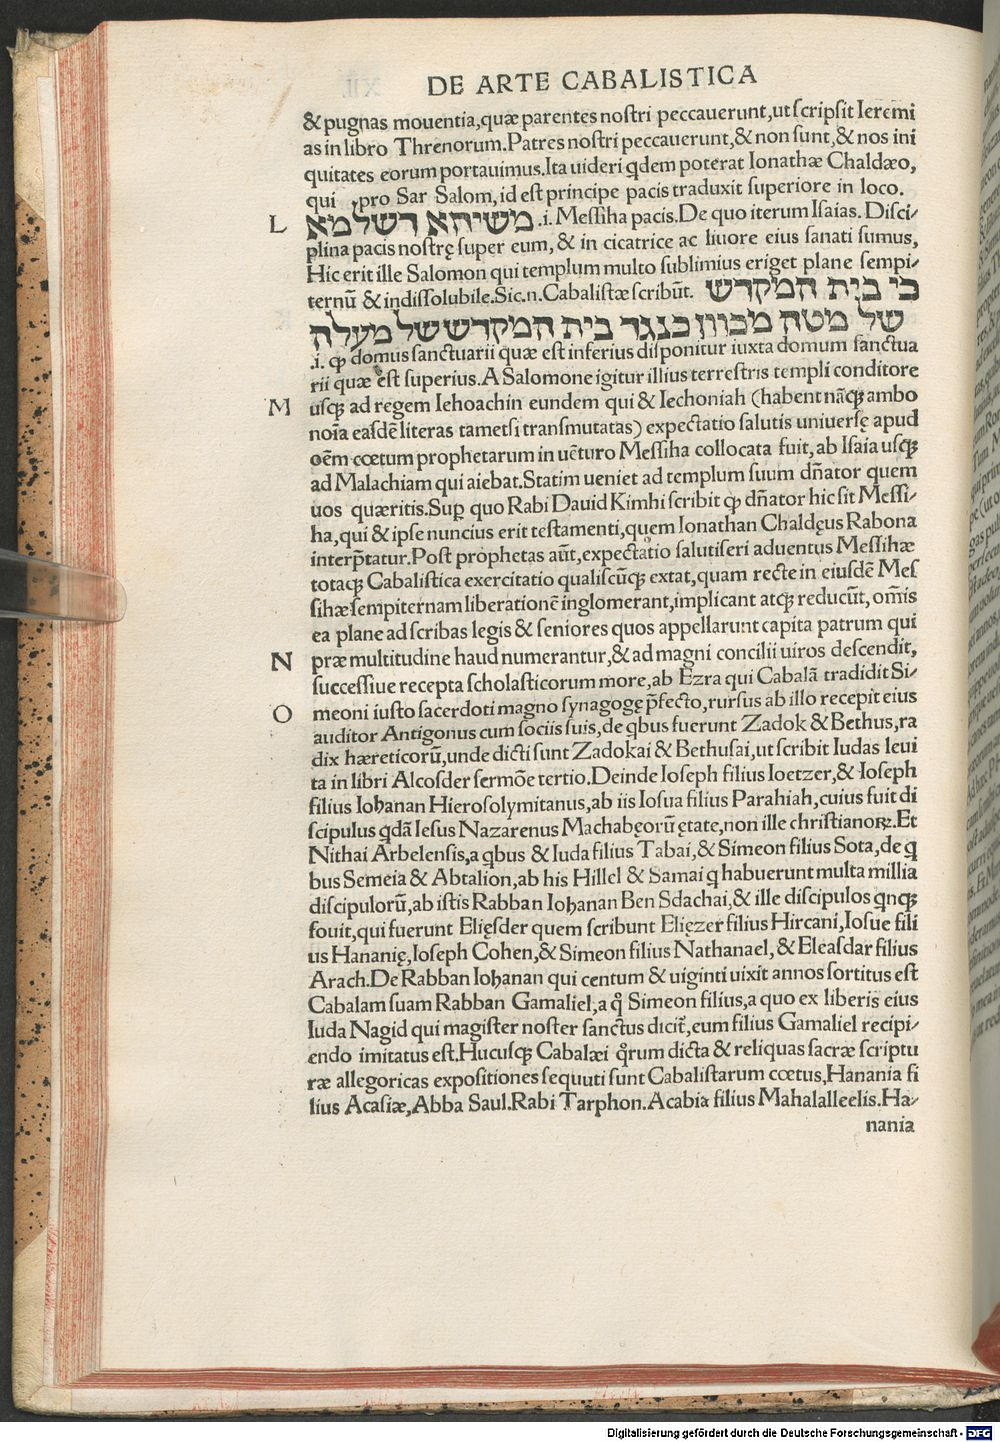 DE ARTE CABALISTICA
& pugnas mouentia,quæ parentes nostri peccauerunt,ut scripsit Ieremi
as in libro Threnorum.Patres nostri peccauerunt,& non sunt,& nos ini
quitates eorum portauimus.Ita uideri qdem poterat Ionathæ Chaldæo,
qui pro Sar Salom,id est principe pacis traduxit superiore in loco.
L משיחא דשלמא .i. Messiha pacis.De quo iterum Isaias. Disci-
plina pacis nostrę super eum, & in cicatrice ac liuore eius sanati sumus,
Hic erit ille Salomon qui templum multo sublimius eriget plane sempi-
ternū & indissolubile.Sic.n.Cabalistæ scribūt. כי בית המקדש
של מטה מכוון כנגד בית המקדש של מעלה
.i. ꝙ domus sanctuarii quæ est inferius disponitur iuxta domum sanctua
rii quæ est superius.A Salomone igitur illius terrestris templi conditore
M usqꝫ ad regem Iehoachin eundem qui & Iechoniah (habent nāqꝫ ambo
noīa easdē literas tametsi transmutatas) expectatio salutis uniuersę apud
oēm cœtum prophetarum in uēturo Messiha collocata fuit, ab Isaia usqꝫ
ad Malachiam qui aiebat.Statim ueniet ad templum suum dn̄ator quem
uos quæritis.Suꝑ quo Rabi Dauid Kimhi scribit ꝙ dn̄ator hic sit Messi-
ha, qui & ipse nuncius erit testamenti,quem Ionathan Chaldęus Rabona
interp̄tatur.Post prophetas aūt,expectatio salutiferi aduentus Messihæ
totaqꝫ Cabalistica exercitatio qualiscūqꝫ extat,quam recte in eiusdē Mes
sihæ sempiternam liberationē inglomerant,implicant atqꝫ reducūt, om̄is
ea plane ad scribas legis & seniores quos appellarunt capita patrum qui
N præ multitudine haud numerantur,& ad magni concilii uiros descendit,
successiue recepta scholasticorum more,ab Ezra qui Cabalā tradidit Si-
O meoni iusto sacerdoti magno synagogę p̄fecto,rursus ab illo recepit eius
auditor Antigonus cum sociis suis,de qbus fuerunt Zadok & Bethus,ra
dix hæreticorū,unde dicti sunt Zadokai & Bethusai,ut scribit Iudas leui
ta in libri Alcosder sermōe tertio.Deinde Ioseph filius Ioetzer,& Ioseph
filius Iohanan Hierosolymitanus,ab iis Iosua filius Parahiah,cuius fuit di
scipulus qdā Iesus Nazarenus Machabęorū ętate,non ille christianoꝝ.Et
Nithai Arbelensis,a qbus & Iuda filius Tabai,& Simeon filius Sota,de q
bus Semeia & Abtalion,ab his Hillel & Samai q habuerunt multa millia
discipulorū,ab istis Rabban Iohanan Ben Sdachai,& ille discipulos qnqꝫ
fouit,qui fuerunt Elięsder quem scribunt Elięzer filius Hircani,Iosue fili
us Hananię,Ioseph Cohen,& Simeon filius Nathanael,& Eleasdar filius
Arach.De Rabban Iohanan qui centum & uiginti uixit annos sortitus est
Cabalam suam Rabban Gamaliel,a qͦ Simeon filius,a quo ex liberis eius
Iuda Nagid qui magister noster sanctus dicit̄,eum filius Gamaliel recipi-
endo imitatus est.Hucusqꝫ Cabalæi qͦrum dicta & reliquas sacræ scriptu
ræ allegoricas expositiones sequuti sunt Cabalistarum cœtus,Hanania fi
lius Acasiæ,Abba Saul.Rabi Tarphon.Acabia filius Mahalalleelis.Ha-
nania
Digitalisierung gefördert durch die Deutsche Forschungsgemeinschaft - DFG